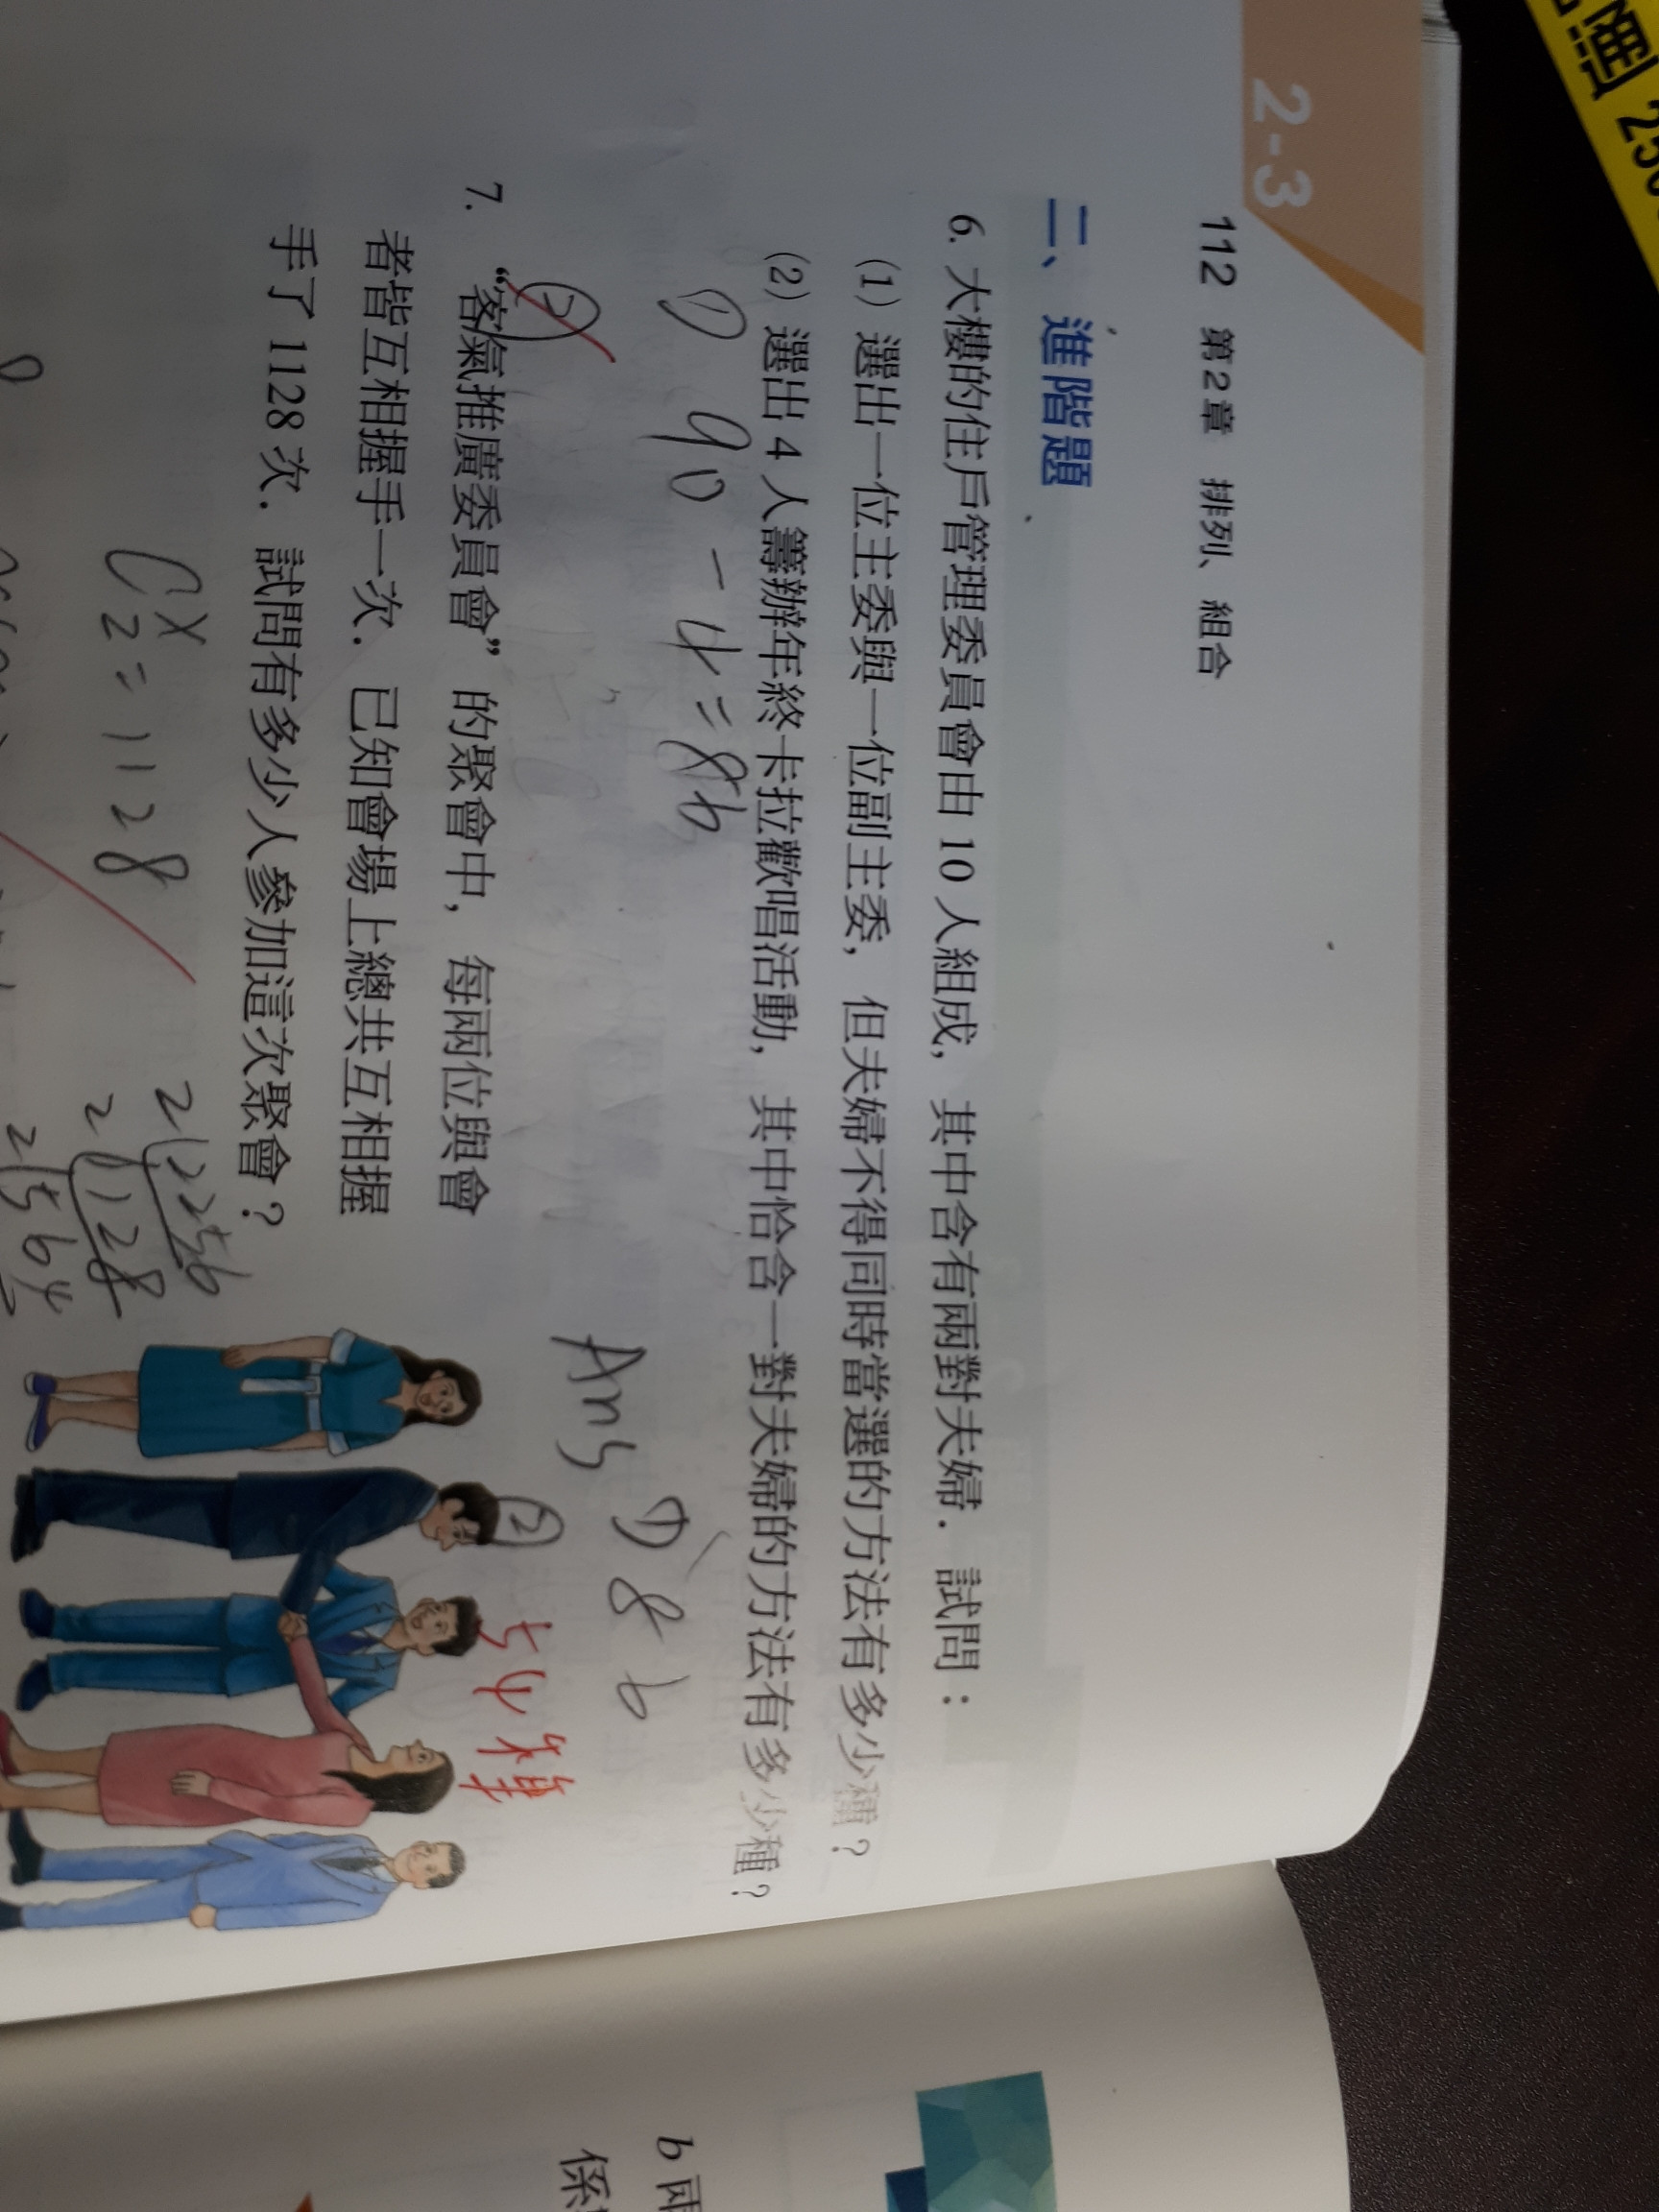 通 250
2-3
112 第2章 排列、組合
二、進階題
6. 大樓的住戶管理委員會由 10 人組成, 其中含有兩對夫婦. 試問:
(1) 選出一位主委與一位副主委, 但夫婦不得同時當選的方法有多少種?
(2) 選出 4 人籌辦年終卡拉歡唱活動, 其中恰含一對夫婦的方法有多少種?
① 90-4=86
②
Ans ① 86
② 54種
7. “客氣推廣委員會” 的聚會中, 每兩位與會
者皆互相握手一次. 已知會場上總共互相握
手了 1128 次. 試問有多少人參加這次聚會?
C x 2 = 1128
2 2256
2 1128
2 564
b 兩
係